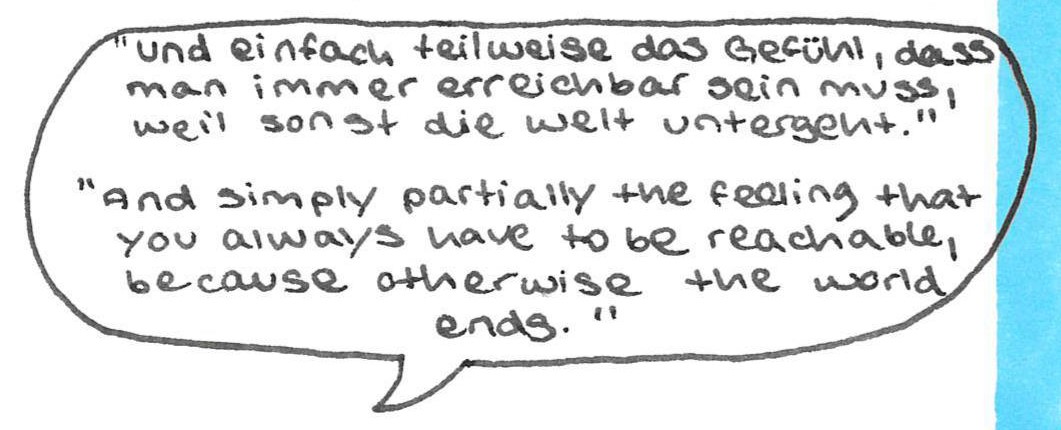 "und einfach teilweise das Gefühl, dass
man immer erreichbar sein muss,
weil sonst die welt untergeht."
"And simply partially the feeling that
you always have to be reachable,
because otherwise the world
ends."